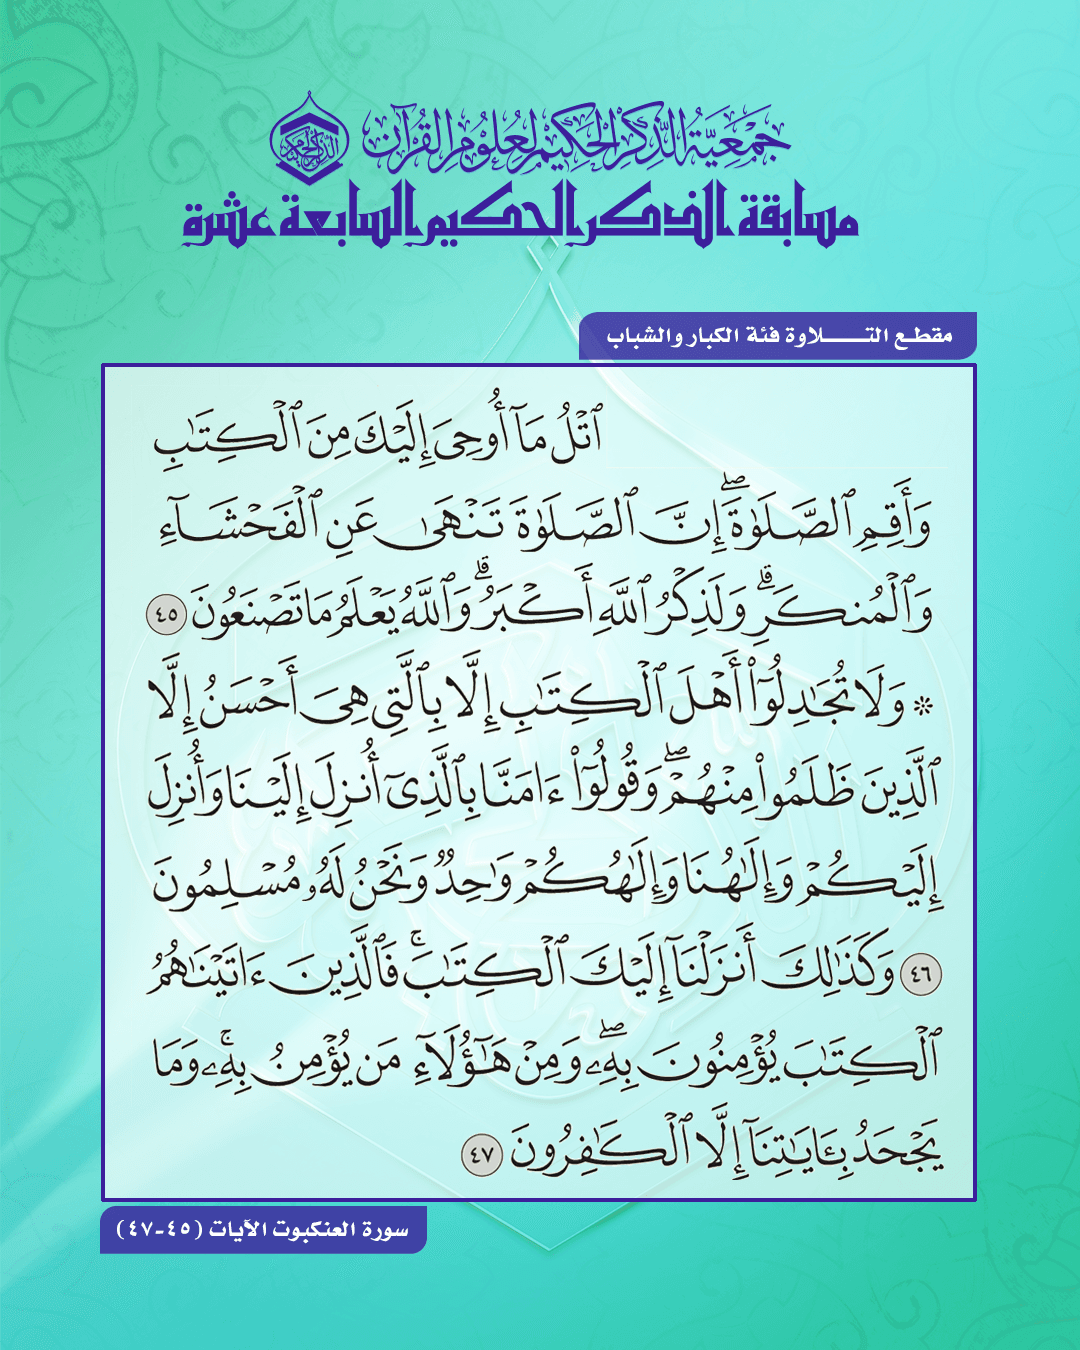 جمعية الذكر الحكيم لعلوم القرآن
الذكر الحكيم
مسابقة الذكر الحكيم السابعة عشرة
مقطع التـــــلاوة فئة الكبار والشباب
ٱتۡلُ مَآ أُوحِيَ إِلَيۡكَ مِنَ ٱلۡكِتَٰبِ
وَأَقِمِ ٱلصَّلَوٰةَۖ إِنَّ ٱلصَّلَوٰةَ تَنۡهَىٰ عَنِ ٱلۡفَحۡشَآءِ
وَٱلۡمُنكَرِۗ وَلَذِكۡرُ ٱللَّهِ أَكۡبَرُۗ وَٱللَّهُ يَعۡلَمُ مَا تَصۡنَعُونَ ٤٥
۞ وَلَا تُجَٰدِلُوٓاْ أَهۡلَ ٱلۡكِتَٰبِ إِلَّا بِٱلَّتِي هِيَ أَحۡسَنُ إِلَّا
ٱلَّذِينَ ظَلَمُواْ مِنۡهُمۡۖ وَقُولُوٓاْ ءَامَنَّا بِٱلَّذِيٓ أُنزِلَ إِلَيۡنَا وَأُنزِلَ
إِلَيۡكُمۡ وَإِلَٰهُنَا وَإِلَٰهُكُمۡ وَٰحِدٞ وَنَحۡنُ لَهُۥ مُسۡلِمُونَ
٤٦ وَكَذَٰلِكَ أَنزَلۡنَآ إِلَيۡكَ ٱلۡكِتَٰبَۚ فَٱلَّذِينَ ءَاتَيۡنَٰهُمُ
ٱلۡكِتَٰبَ يُؤۡمِنُونَ بِهِۦۖ وَمِنۡ هَٰٓؤُلَآءِ مَن يُؤۡمِنُ بِهِۦۚ وَمَا
يَجۡحَدُ بِـَٔايَٰتِنَآ إِلَّا ٱلۡكَٰفِرُونَ ٤٧
سورة العنكبوت الآيات (٤٥-٤٧)